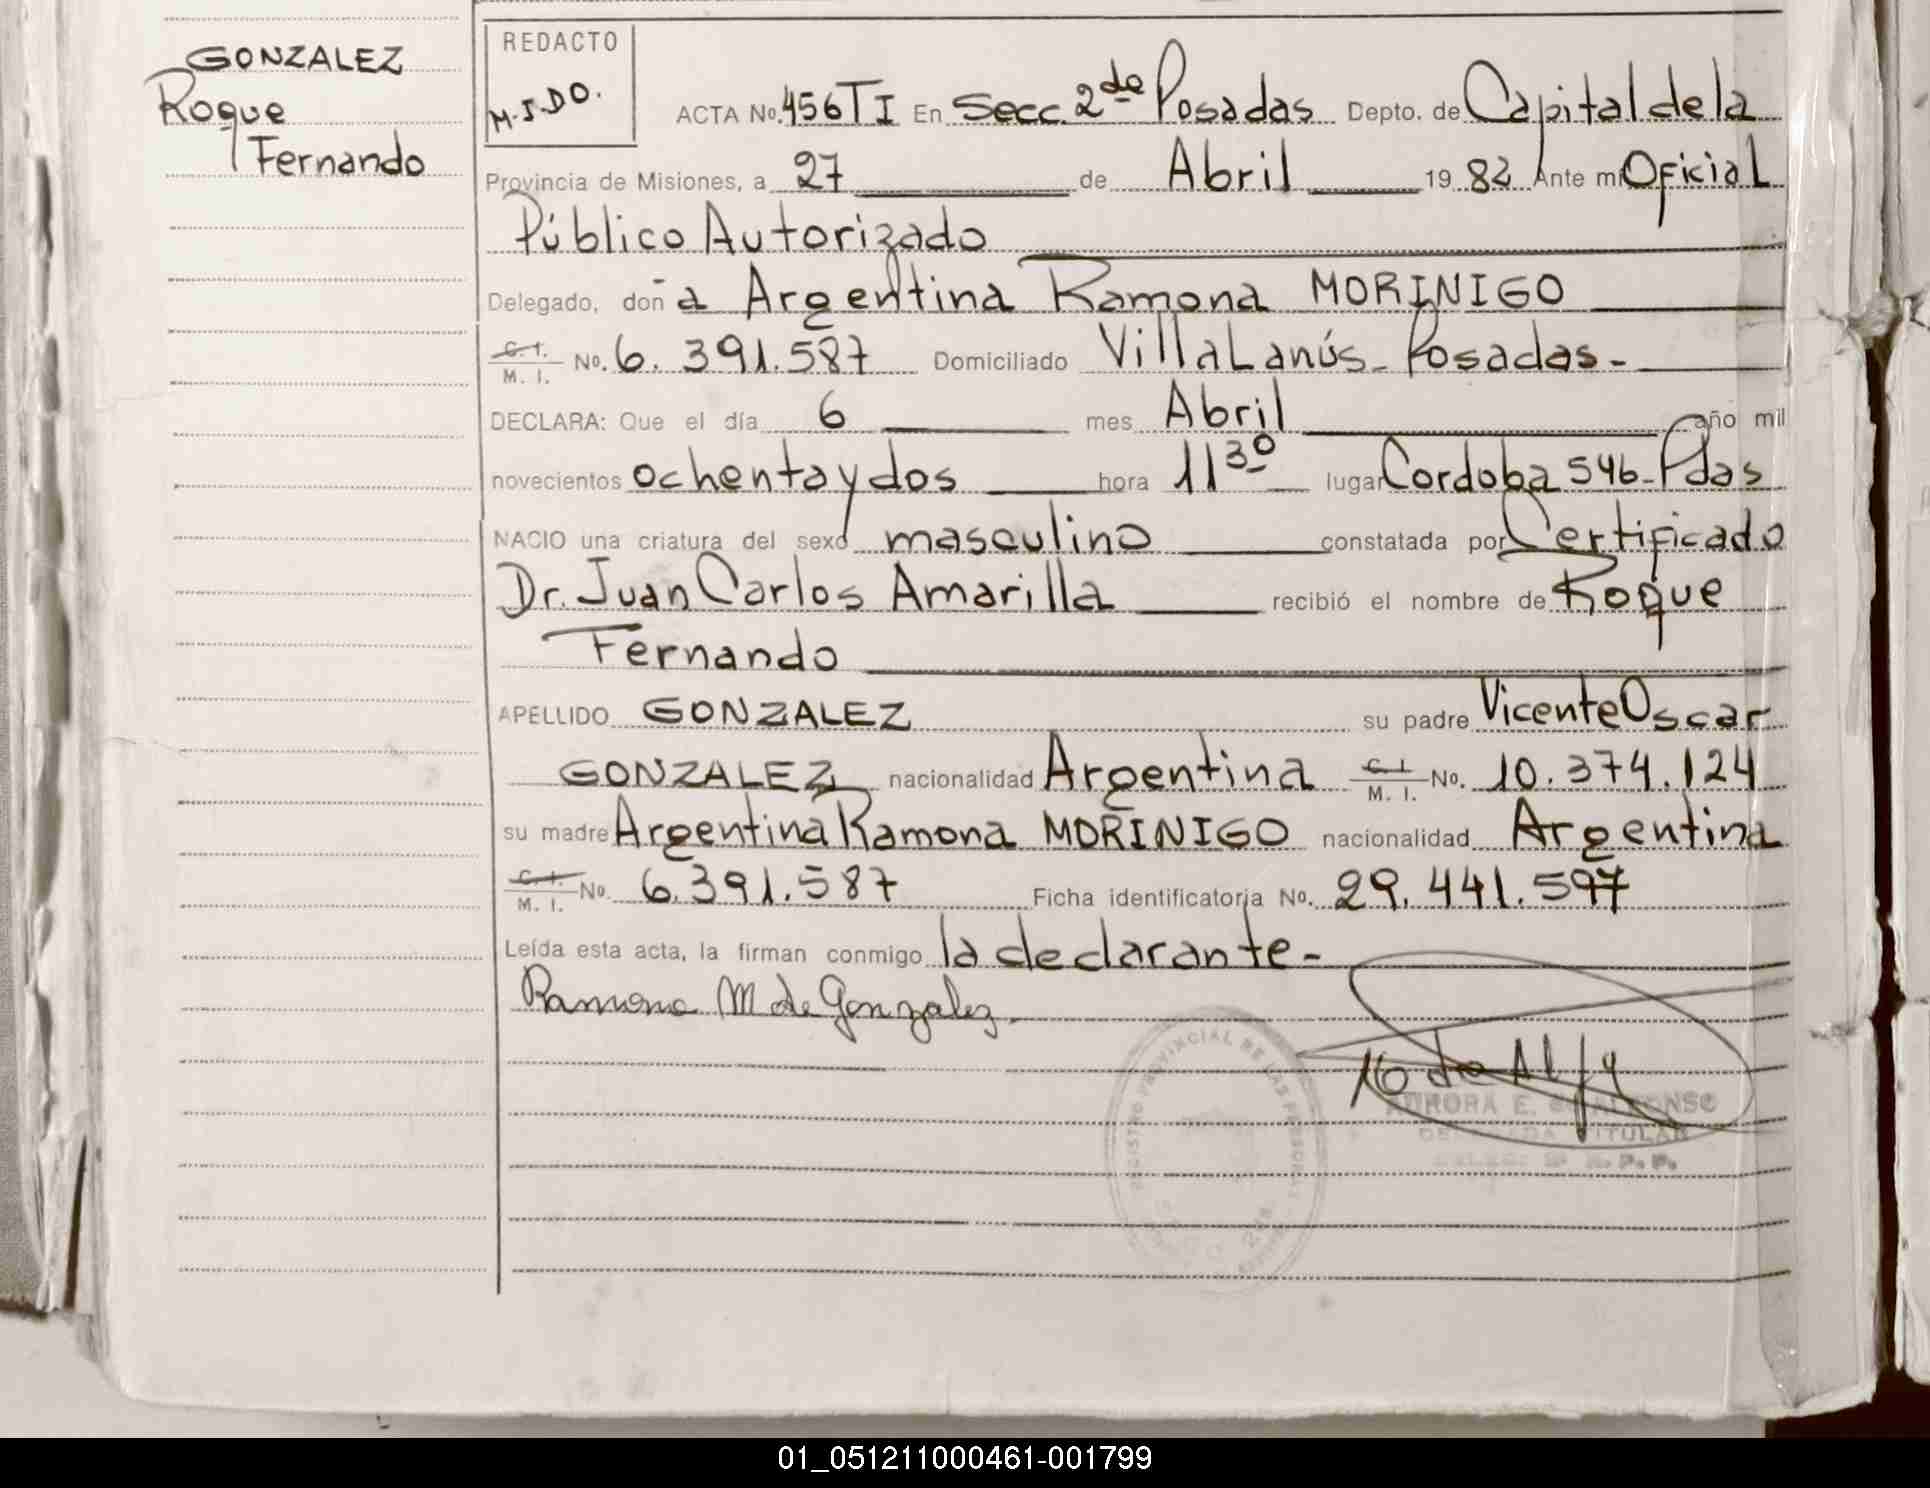 GONZALEZ
Roque
Fernando
REDACTO
M.J.DO.
ACTA No. 456 TI En Secc. 2da Posadas Depto. de Capital de la
Provincia de Misiones, a 27 de Abril 19 82 Ante mi Oficial
Público Autorizado
Delegado, don a Argentina Ramona MORINIGO
C. I. M. I. No. 6. 391.587 Domiciliado Villa Lanús - Posadas -
DECLARA: Que el día 6 mes Abril año mil
novecientos ochenta y dos hora 11 30 lugar Cordoba 546 - Pdas
NACIO una criatura del sexo masculino constatada por Certificado
Dr. Juan Carlos Amarilla recibió el nombre de Roque
Fernando
APELLIDO GONZALEZ su padre Vicente Oscar
GONZALEZ nacionalidad Argentina C. I. M. I. No. 10.374.124
su madre Argentina Ramona MORINIGO nacionalidad Argentina
C. I. M. I. No. 6.391.587 Ficha identificatoria No. 29.441.597
Leída esta acta, la firman conmigo la declarante -
Ramona M de Gonzalez.
REGISTRO PROVINCIAL DE LAS PERSONAS
AURORA E.
TITULAR
R.P.P.
01_051211000461-001799